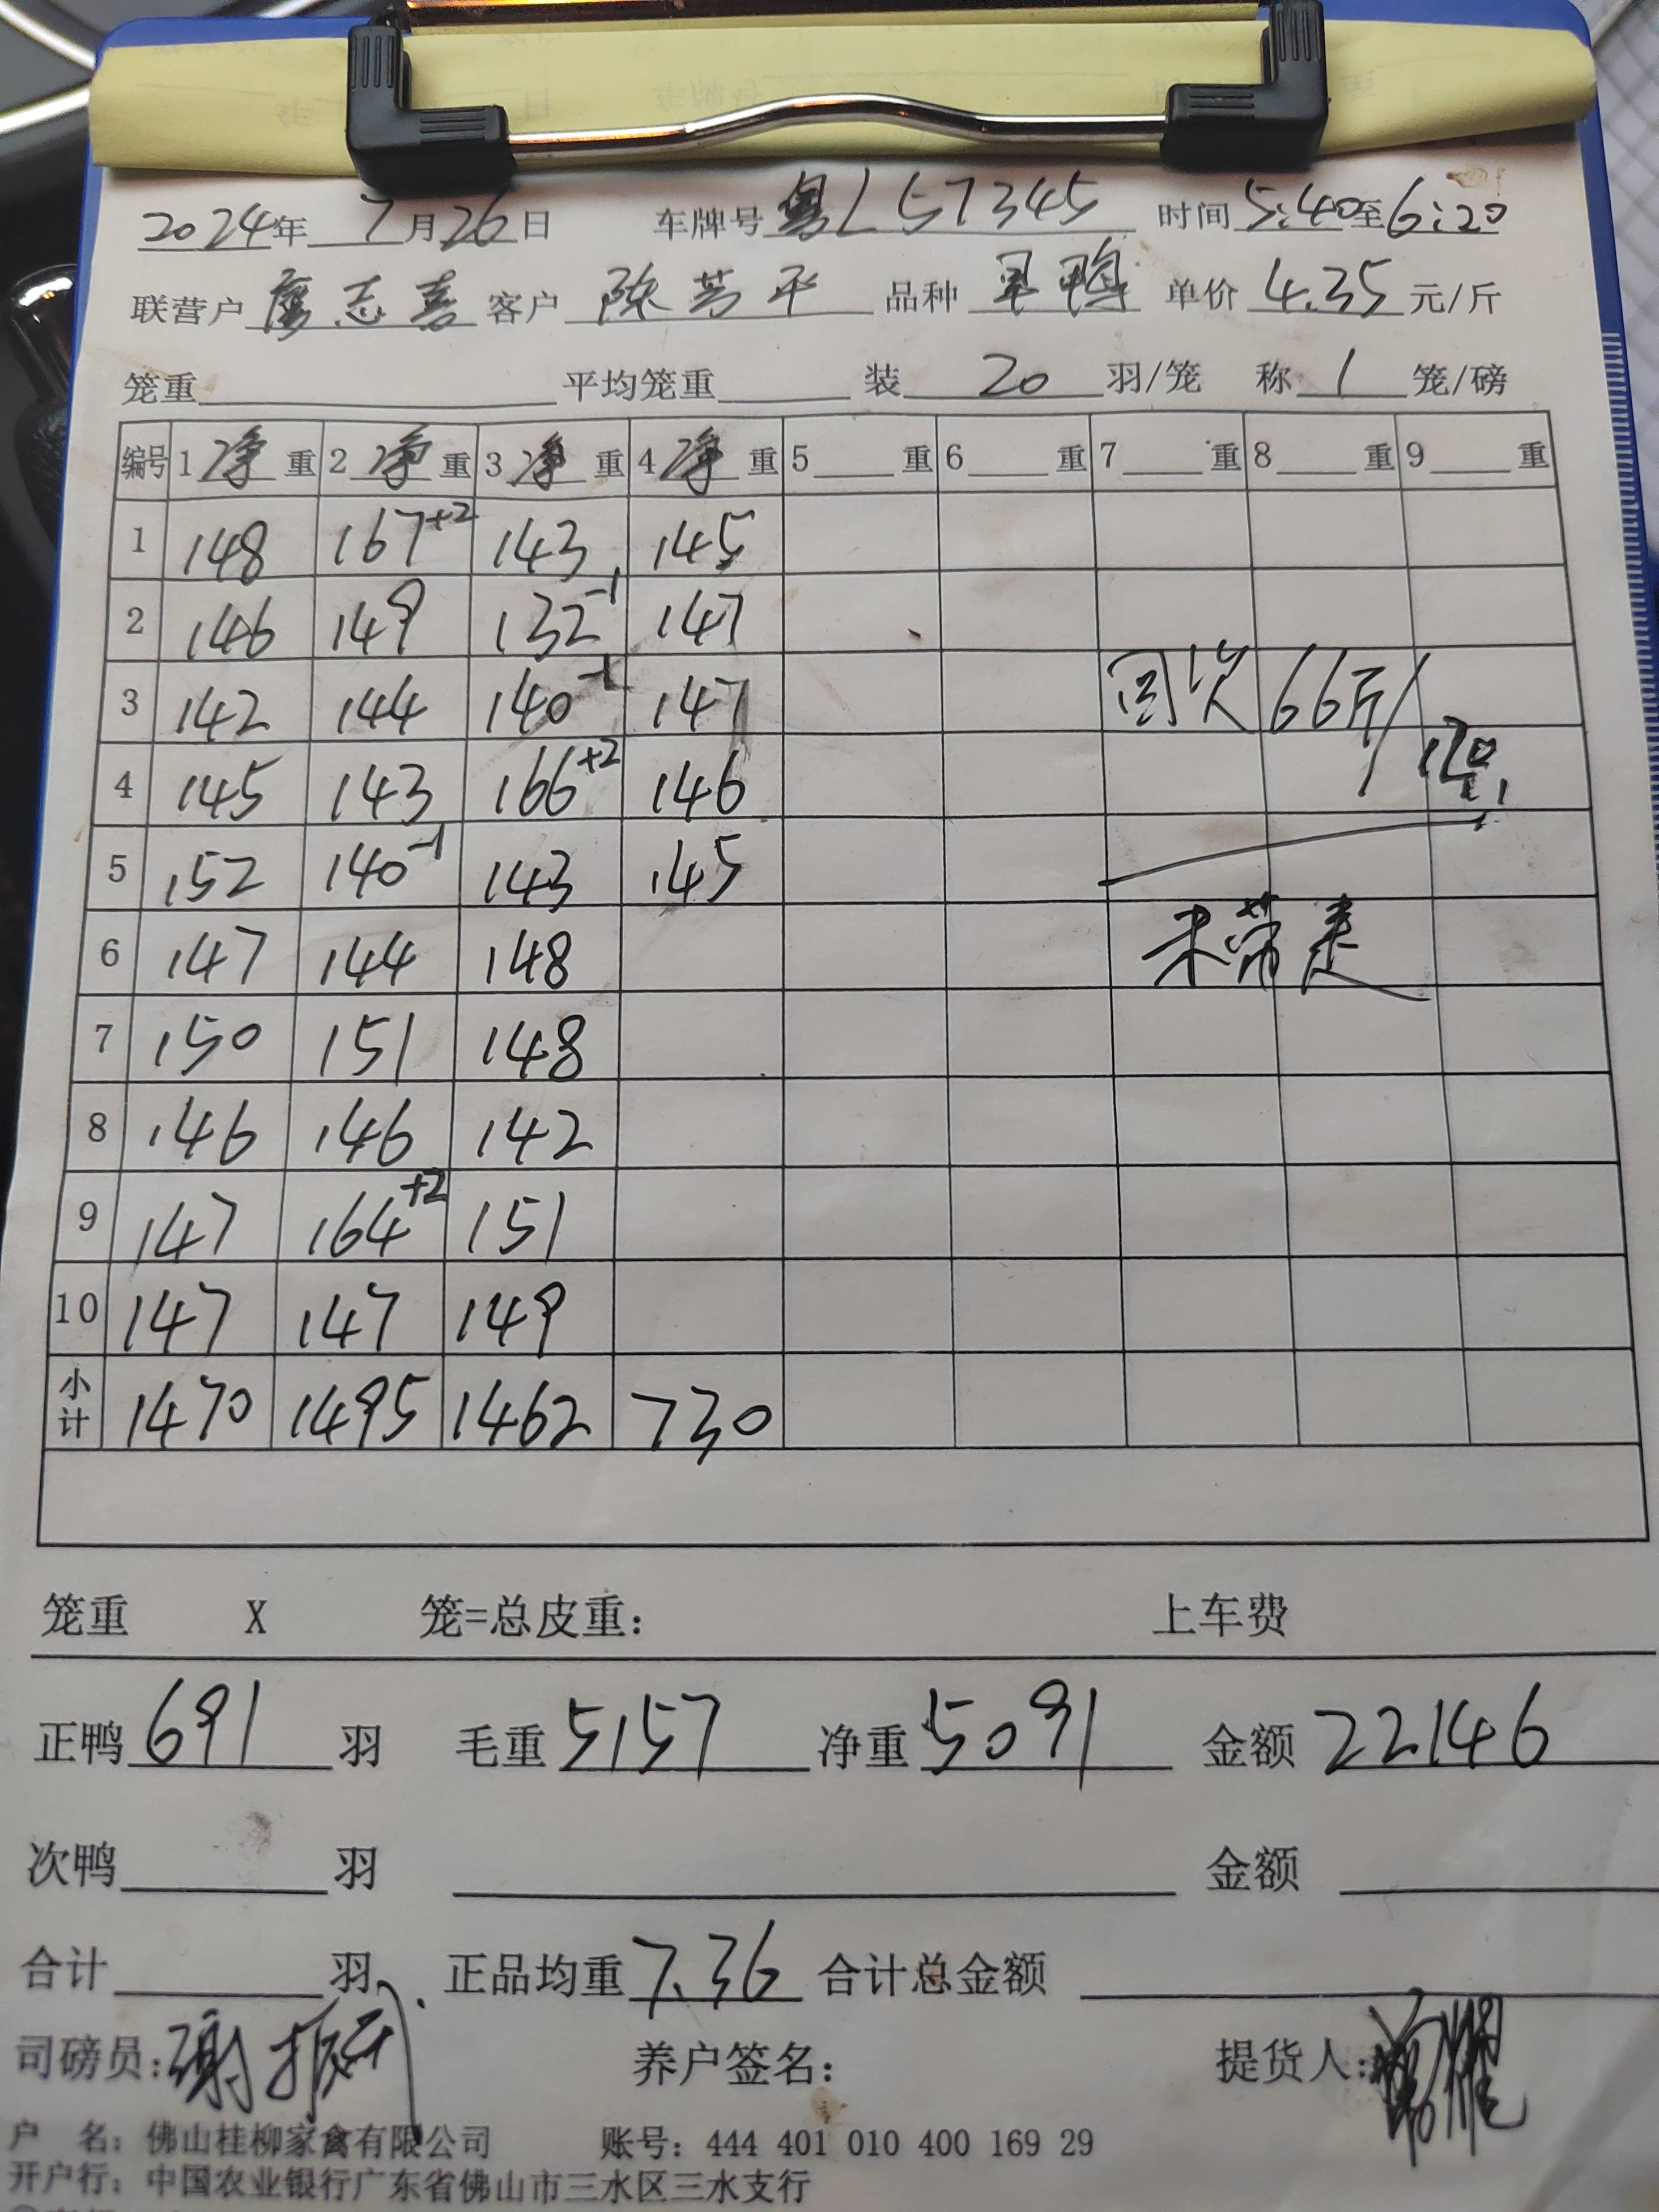 2024年 7月26日 车牌号 粤L57345 时间 5:40至6:20
联营户 廖志喜 客户 陈芳平 品种 单价 4.35 元/斤
笼重 平均笼重 装 20 羽/笼 称 1 笼/磅
编号 1 净 重 2 净 重 3 净 重 4 净 重 5 重 6 重 7 重 8 重 9 重
1 148 167+2 143 145
2 146 149 132-1 147
3 142 144 140-1 147 回次66斤/
4 145 143 166+2 146
5 152 140-1 143 145
6 147 144 148 未带走
7 150 151 148
8 146 146 142
9 147 164+2 151
10 147 147 149
小计 1470 1495 1462 730
笼重 X 笼=总皮重: 上车费
正鸭 691 羽 毛重 5157 净重 5091 金额 22146
次鸭 羽 金额
合计 羽 正品均重 7.36 合计总金额
司磅员: 养户签名: 提货人:
户 名: 佛山桂柳家禽有限公司 账号: 444 401 010 400 169 29
开户行: 中国农业银行广东省佛山市三水区三水支行